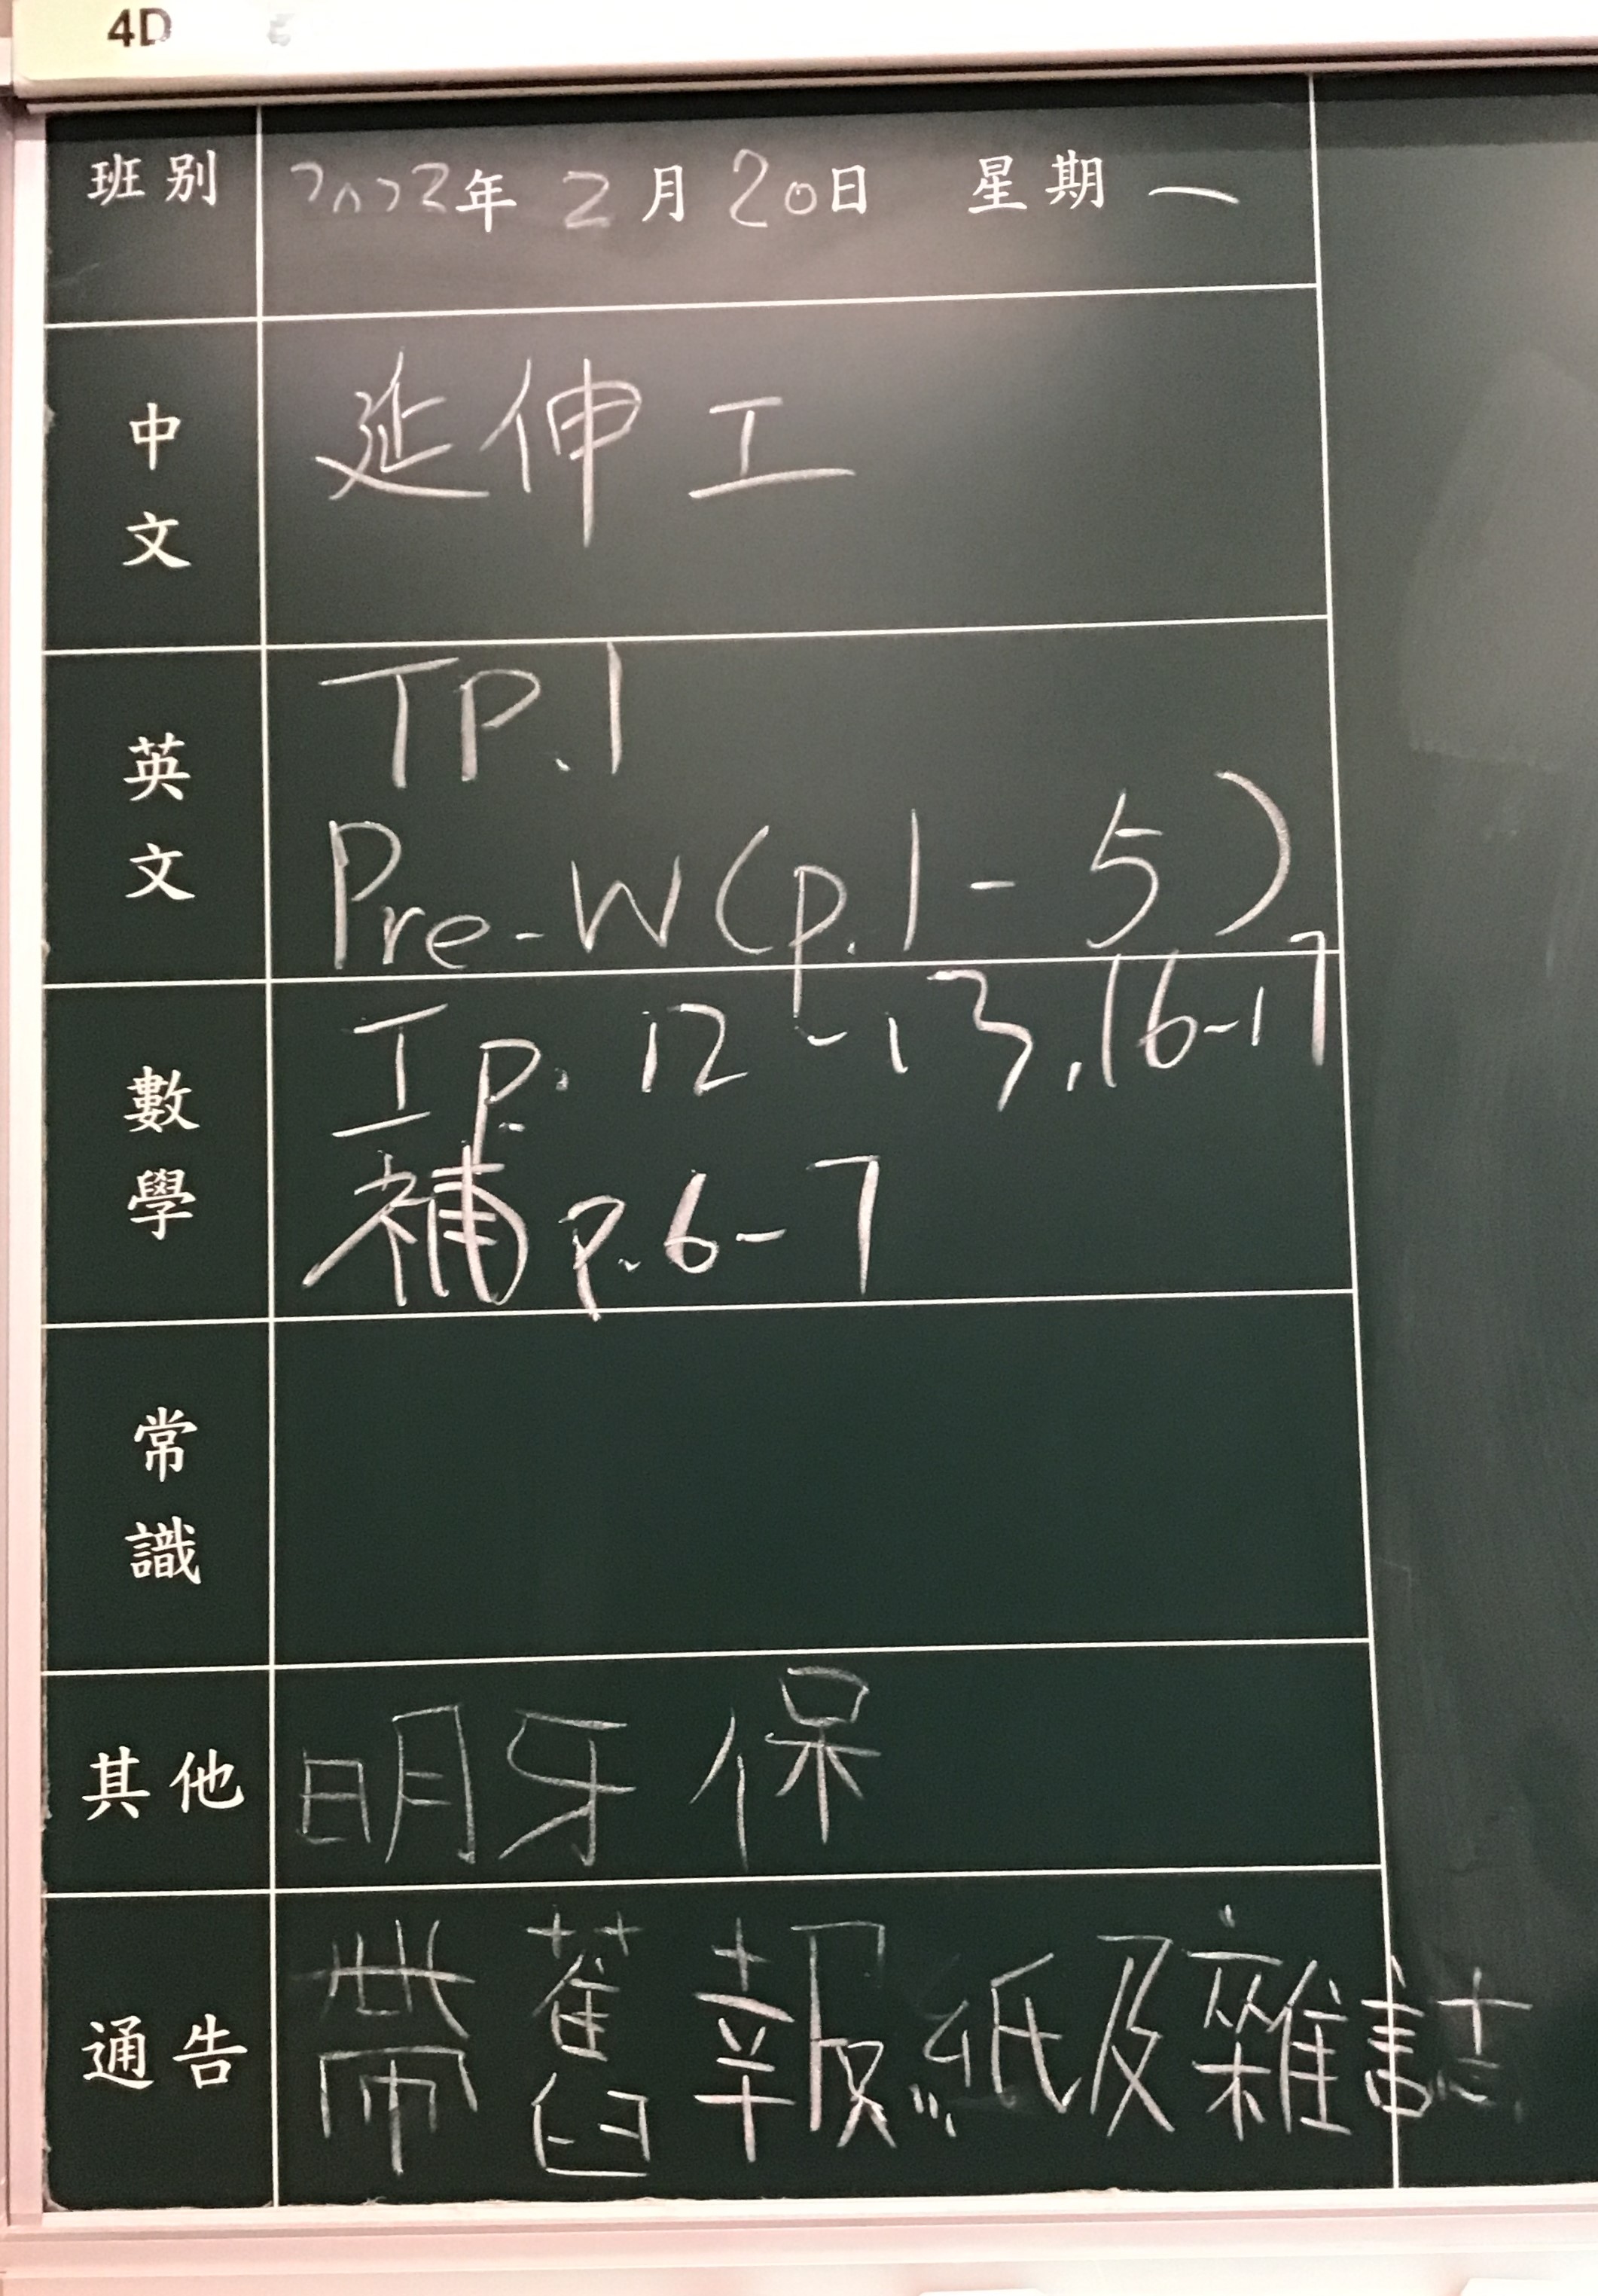 4D
班別 2023年 2月 20日 星期一
中文 延伸工
英文 TP.1
Pre-W (p.1-5)
數學 工 p. 12-13, 16-17
補 p.6-7
常識
其他 明牙保
通告 帶舊報紙及雜誌